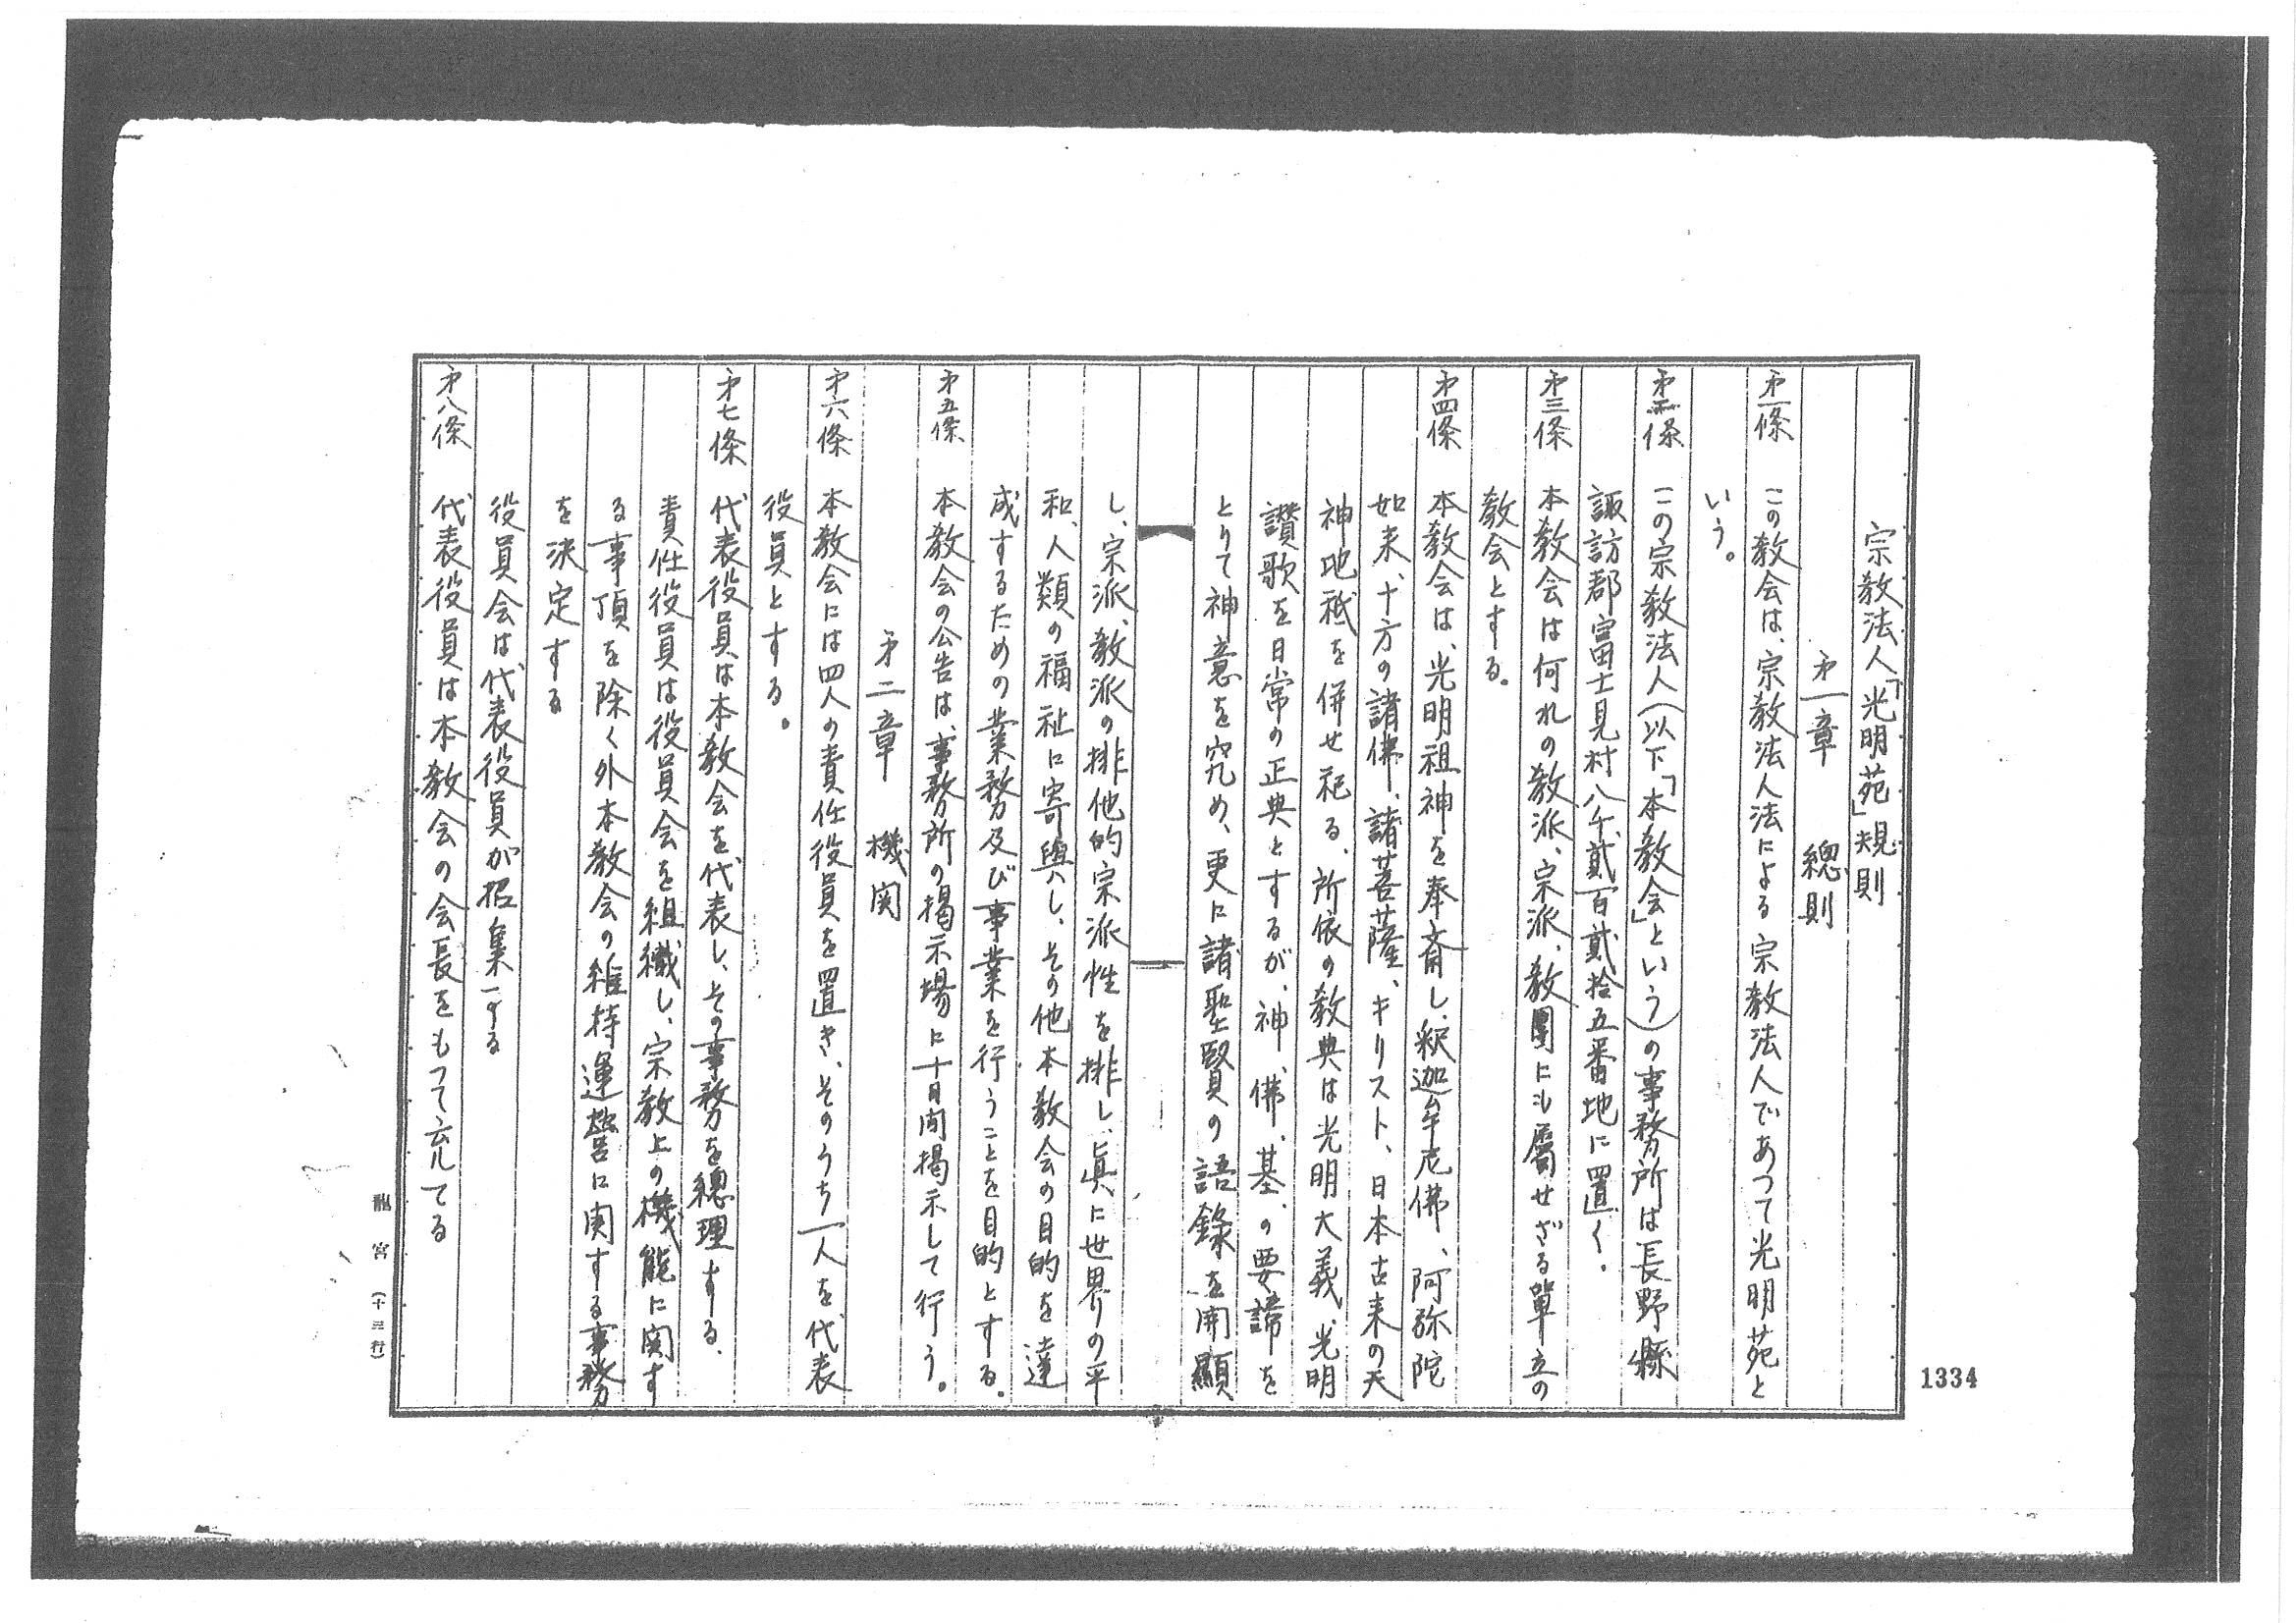 宗教法人「光明苑」規則
第一章　總則
第一條　この教会は、宗教法人法による宗教法人であつて光明苑と
いう。
第二條　この宗教法人（以下「本教会」という）の事務所は長野縣
諏訪郡富士見村八千貳百貳拾五番地に置く。
第三條　本教会は何れの教派、宗派、教團にも屬せざる單立の
教会とする。
第四條　本教会は、光明祖神を奉斎し、釈迦牟尼佛、阿弥陀
如来、十方の諸佛、諸菩薩、キリスト、日本古来の天
神地祇を併せ祀る、所依の教典は光明大義、光明
讃歌を日常の正典とするが、神、佛、基、の要諦を
とりて神意を究め、更に諸聖賢の語錄を開顯
し、宗派、教派の排他的宗派性を排し、眞に世界の平
和、人類の福祉に寄與し、その他本教会の目的を達
成するための業務及び事業を行うことを目的とする。
第五條　本教会の公告は、事務所の掲示場に十日間掲示して行う。
第二章　機関
第六條　本教会には四人の責任役員を置き、そのうち一人を代表
役員とする。
第七條　代表役員は本教会を代表し、その事務を總理する、
責任役員は役員会を組織し、宗教上の機能に関す
る事項を除く外本教会の維持運営に関する事務
を決定する
役員会は代表役員が招集する
第八條　代表役員は本教会の会長をもつて充てる
龍宮（十三行）
1334